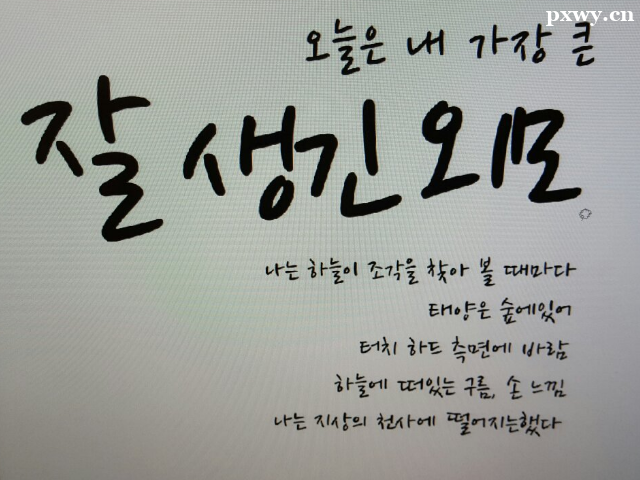 pxwy.cn
오늘은 내 가장 큰
잘 생긴 외모
나는 하늘이 조각을 찾아 볼 때마다
태양은 숲에있어
터치 하드 측면에 바람
하늘에 떠있는 구름, 손 느낌
나는 지상의 천사에 떨어지는했다